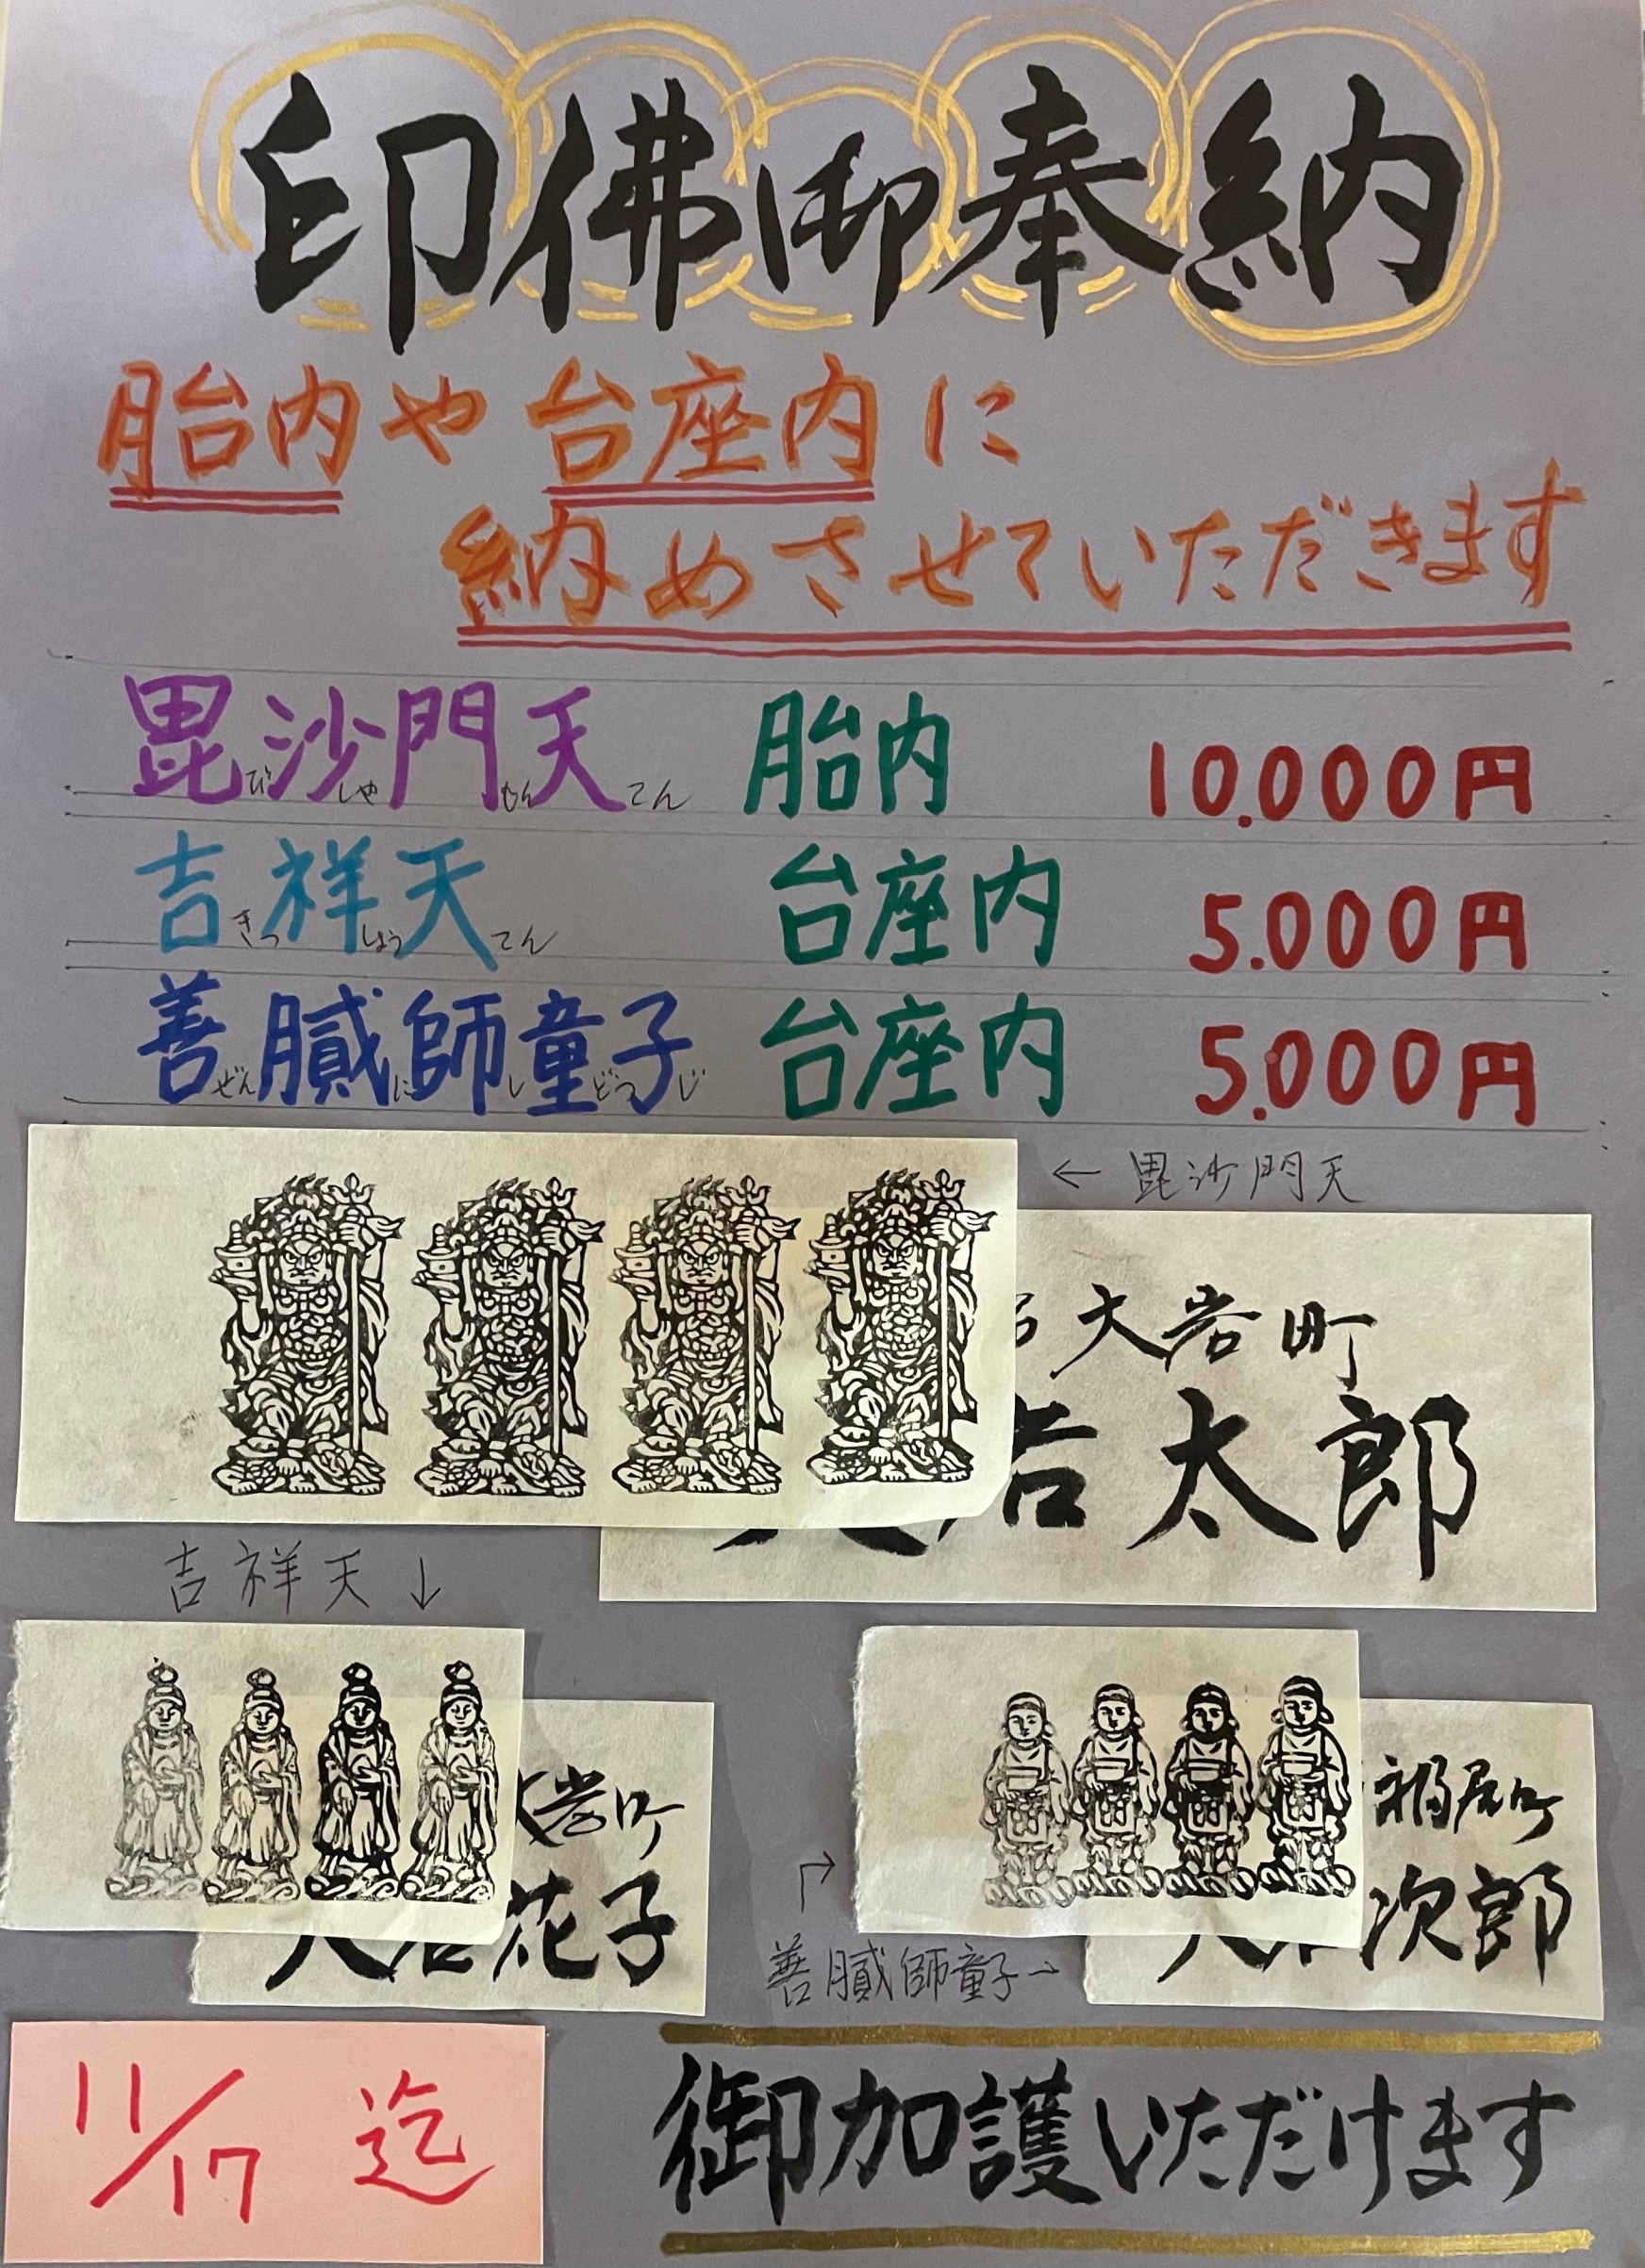 印佛御奉納
胎内や台座内に
納めさせていただきます
毘沙門天 胎内 10.000円
びしゃもんてん
吉祥天 台座内 5.000円
きっしょうてん
善膩師童子 台座内 5.000円
ぜんにしどうじ
← 毘沙門天
大岩町
岩太郎
吉祥天 ↓
大岩町
大岩花子
福居町
大岩次郎
善膩師童子→
11/17 迄
御加護いただけます